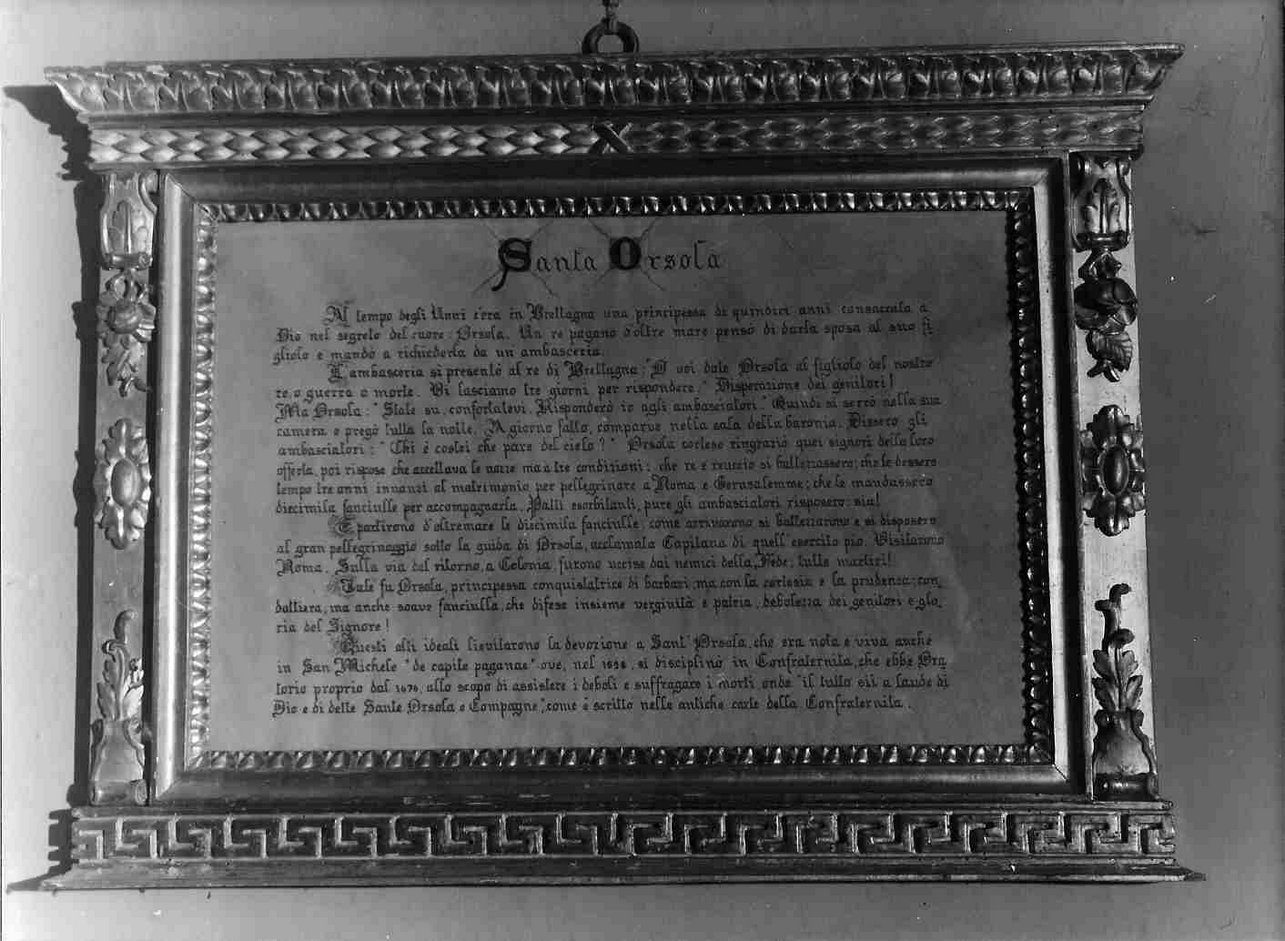 Santa Orsola
Al tempo degli Unni c'era in Brettagna una principessa di quindici anni consacrata a
Dio nel segreto del cuore: Orsola. Un re pagano d'oltre mare pensò di darla sposa al suo fi
gliolo e mandò a richiederla da un'ambasceria.
L'ambasceria si presentò al re di Brettagna: "O voi date Orsola al figliolo del nostro
re, o guerra a morte. Vi lasciamo tre giorni per rispondere." Disperazione dei genitori!
Ma Orsola: "State su, confortatevi. Risponderò io agli ambasciatori." Quindi si serrò nella sua
camera e pregò tutta la notte. A giorno fatto, comparve nella sala della baronia. Dissero gli
ambasciatori: "Chi è costei che pare del cielo?" Orsola cortese ringraziò quei signori della loro
offerta, poi rispose che accettava le nozze ma a tre condizioni: che re e reuccio si battezzassero; che le dessero
tempo tre anni innanzi al matrimonio per pellegrinare a Roma e Gerusalemme; che le mandassero
diecimila fanciulle per accompagnarla. Patti esorbitanti, pure gli ambasciatori risposero: sia!
E partirono d'oltremare le diecimila fanciulle, come arrivarono si battezzarono e si disposero
al gran pellegrinaggio sotto la guida di Orsola, acclamata Capitana di quell'esercito pio. Visitarono
Roma. Sulla via del ritorno, a Colonia, furono uccise dai nemici della Fede: tutte martiri!
Tale fu Orsola, principessa conquistatrice di barbari, ma con la cortesia e la prudenza; con
dottiera, ma anche soave fanciulla, che difese insieme verginità e patria, debolezza dei genitori e glo
ria del Signore!
Questi alti ideali lievitarono la devozione a Sant'Orsola, che era nota e viva anche
in San Michele "de capite paganae" ove, nel 1636, si disciplinò in Confraternita, che ebbe Ora
torio proprio dal 1676, allo scopo di assistere i deboli e suffragare i morti onde "il tutto sii a laude di
Dio e di delle Sante Orsola e Compagne", come è scritto nelle antiche carte della Confraternita.